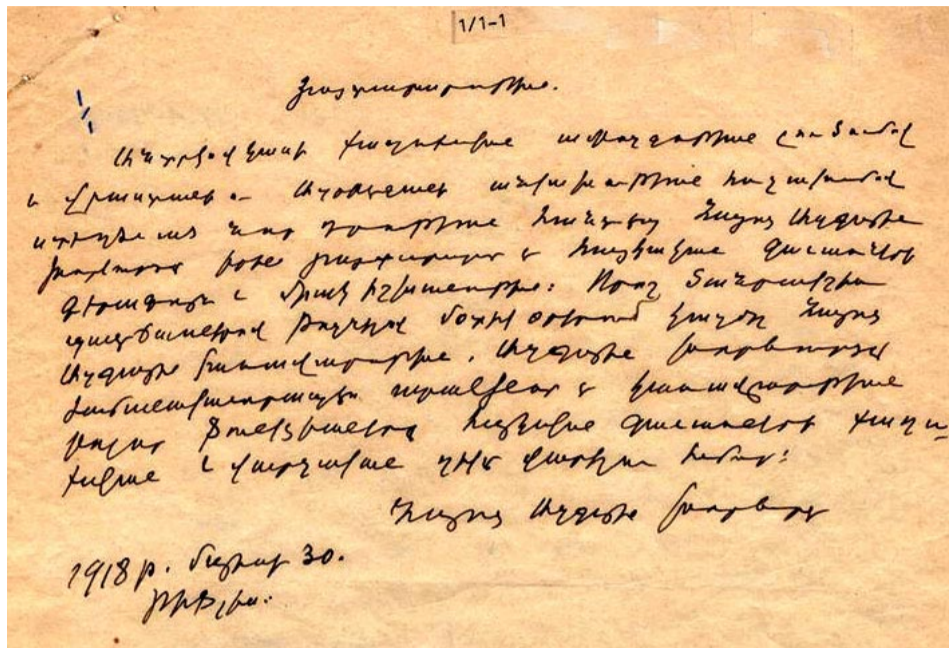 1/1-1
Յայտարարութիւն.
Անդրկովկասի քաղաքական ամբողջութեան լուծումով
և Վրաստանի ու Ադրբէջանի անկախութեան հռչակումով
ստեղծւած նոր դրութեան հանդէպ Հայոց Ազգային
խորհուրդը իրեն յայտարարում է հայկական գաւառների
գերագոյն և միակ իշխանութիւնը: Որոշ ծանրակշիռ
պատճառներով թողնելով մօտիկ օրերում կազմել Հայոց
Ազգային կառավարութիւն, Ազգային խորհուրդը
ժամանակաւորապէս ստանձնում է կառավարութեան
բոլոր ֆունկցիաները հայկական գաւառների քաղա-
քական և վարչական ղեկը վարելու համար:
Հայոց Ազգային խորհուրդ
1918 թ. մայիսի 30.
Թիֆլիս: